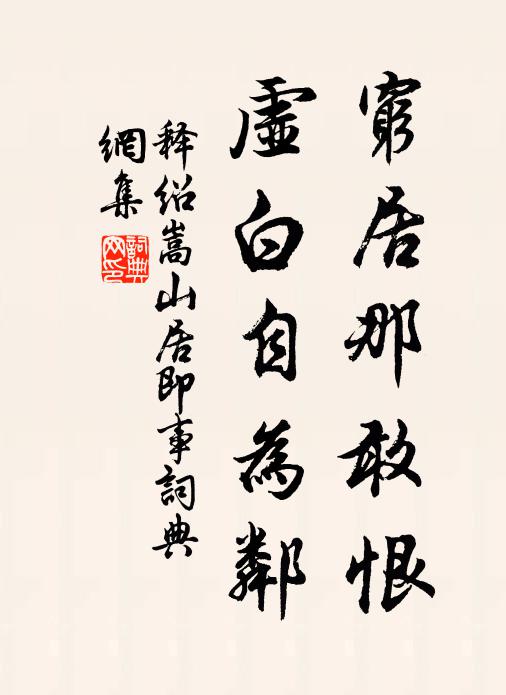 窮居那敢恨
虛白自為鄰
释紹嵩山居即事詞典
網集
詞典
网印